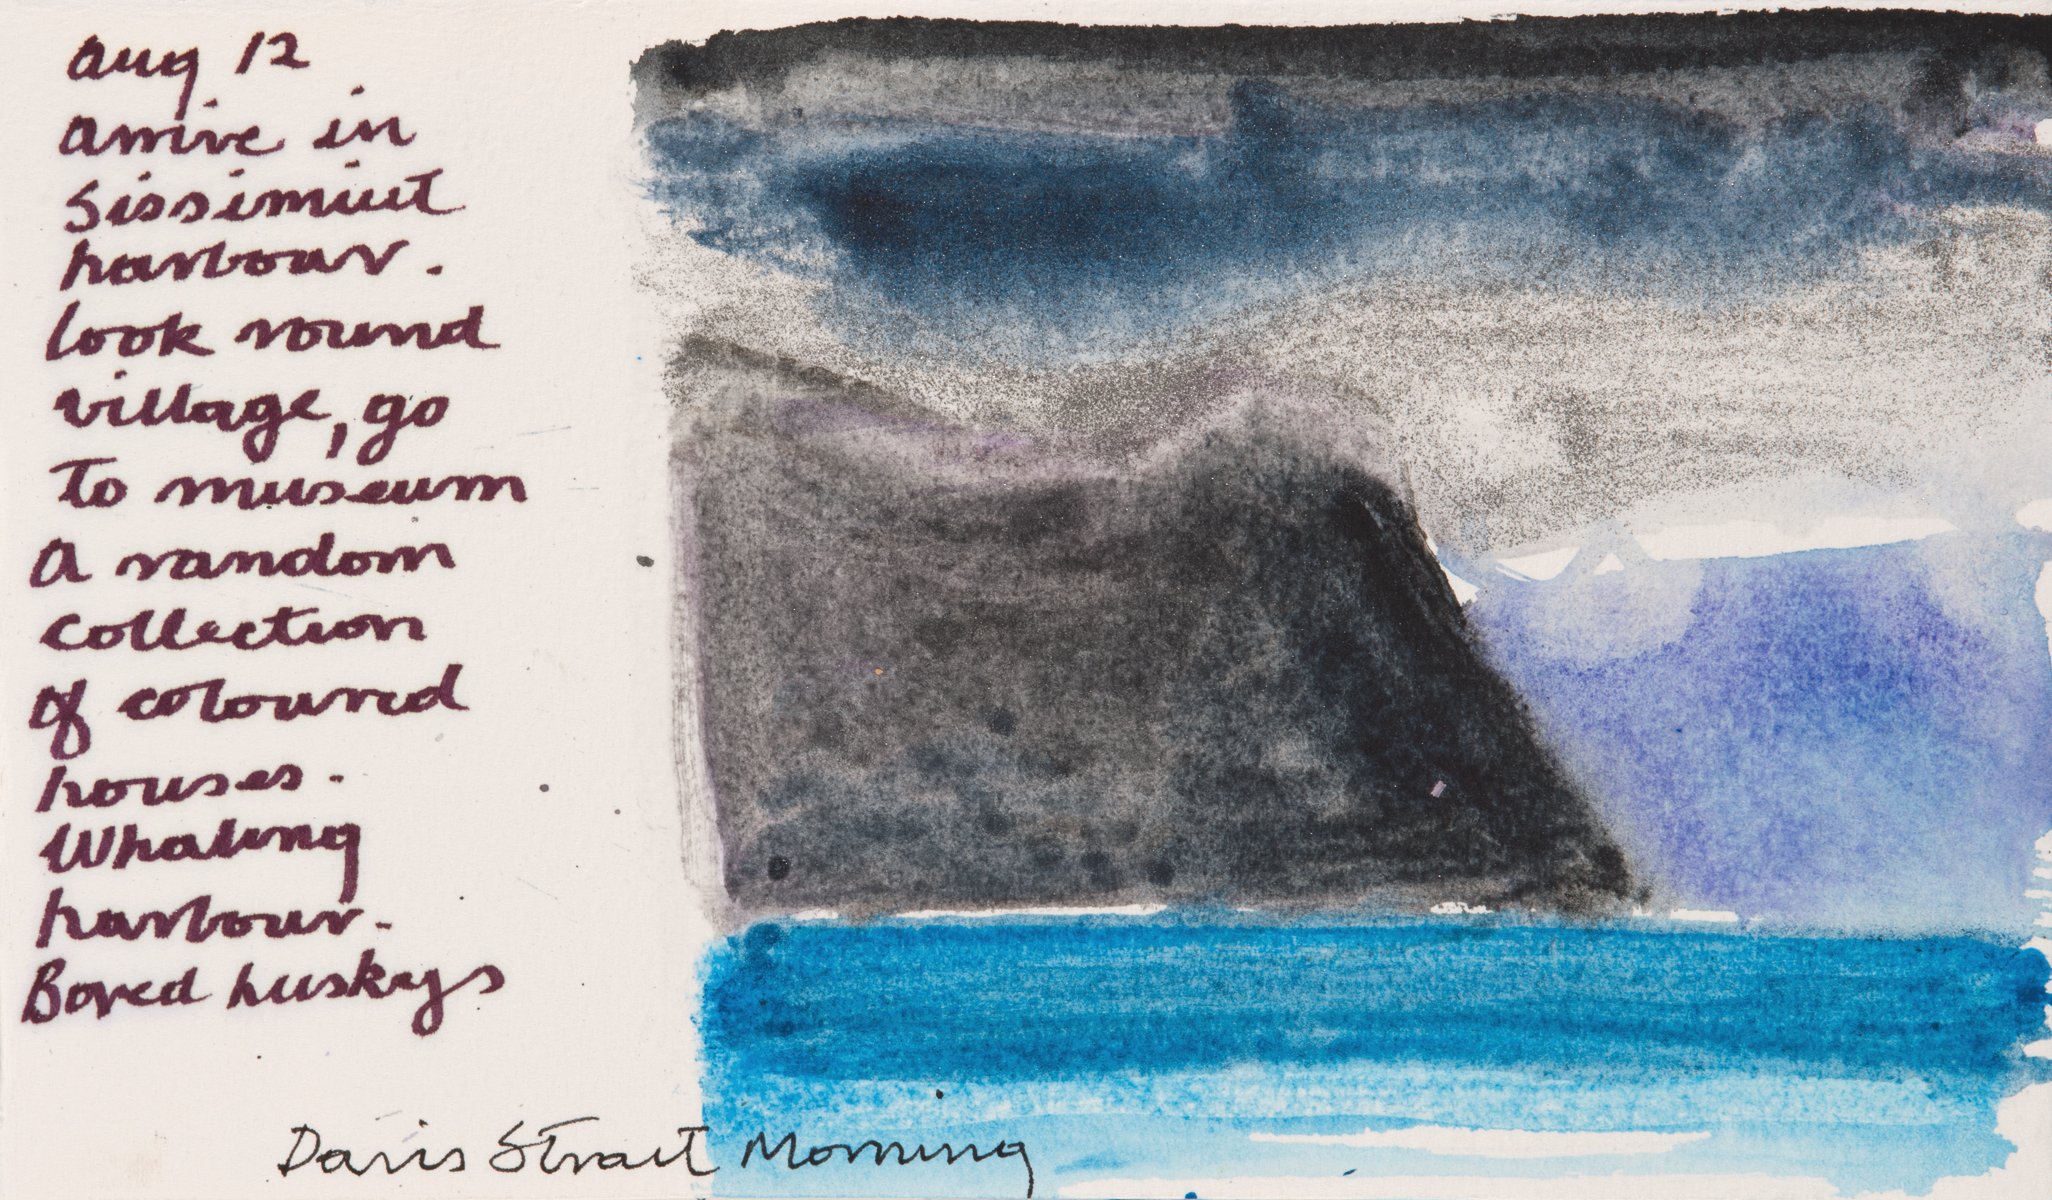 Aug 12
Arrive in
Sissimiut
harbour.
look round
village, go
to museum
A random
collection
of coloured
houses.
Whaling
harbour.
Bored huskys
Davis Strait Morning